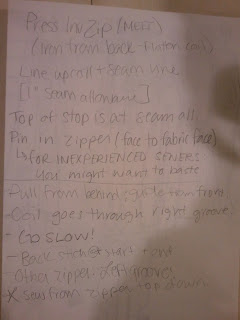 Press Inv Zip (MEET)
(Iron from back - flatten coil)
Line up coil + seam line
[1" seam allowance]
Top of stop is at seam all.
Pin in zipper (face to fabric face)
↳ FOR INEXPERIENCED SEWERS
you might want to baste
- Pull from behind, guide from front
- Coil goes through right groove.
- GO SLOW!
- Back stitch @ start + end
- Other zipper: left groove
X sew from zipper top down